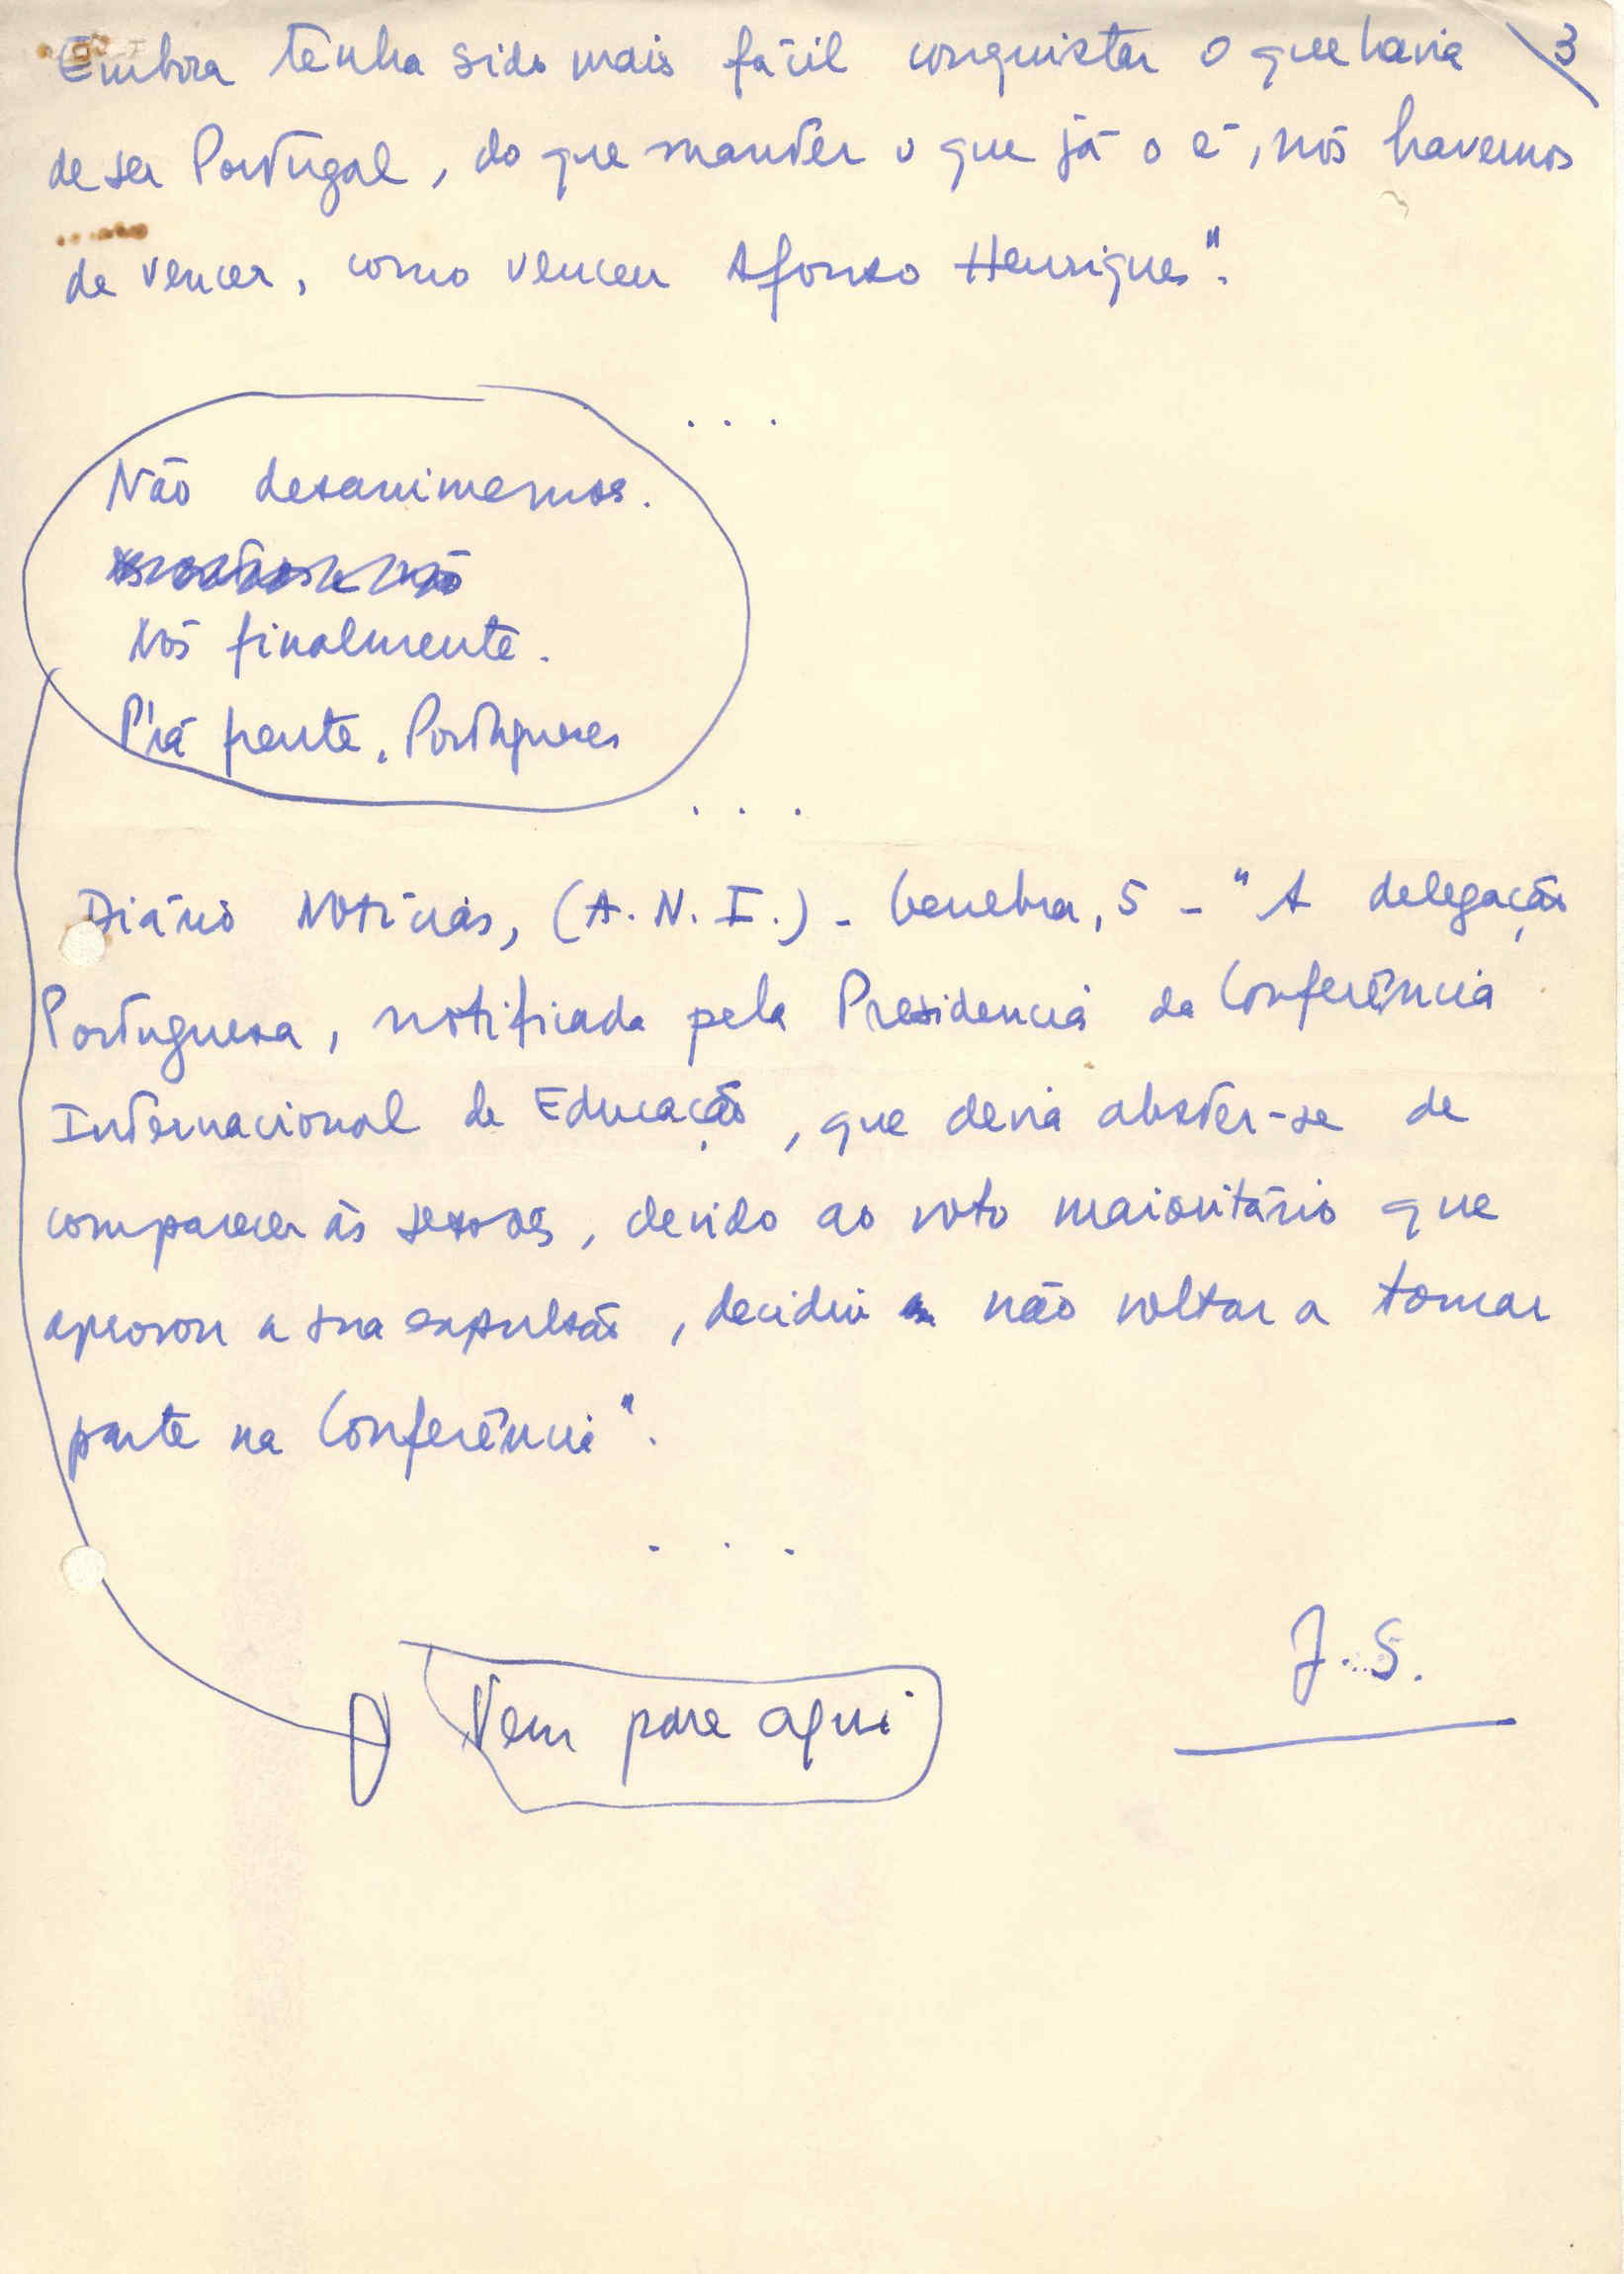 3
Embora tenha sido mais fácil conquistar o que havia
de ser Portugal, do que manter o que já o é, nós havemos
de vencer, como venceu Afonso Henriques".
...
Não desanimemos.
Nós finalmente.
P'rá frente, Portugueses
...
Diário Notícias, (A.N.I.) - Genebra, 5 - "A delegação
Portuguesa, notificada pela Presidencia da Conferência
Internacional de Educação, que devia abster-se de
comparecer às sessões, devido ao voto maioritário que
aprovou a sua expulsão, decidiu não voltar a tomar
parte na Conferência".
...
J.S.
Vem para aqui